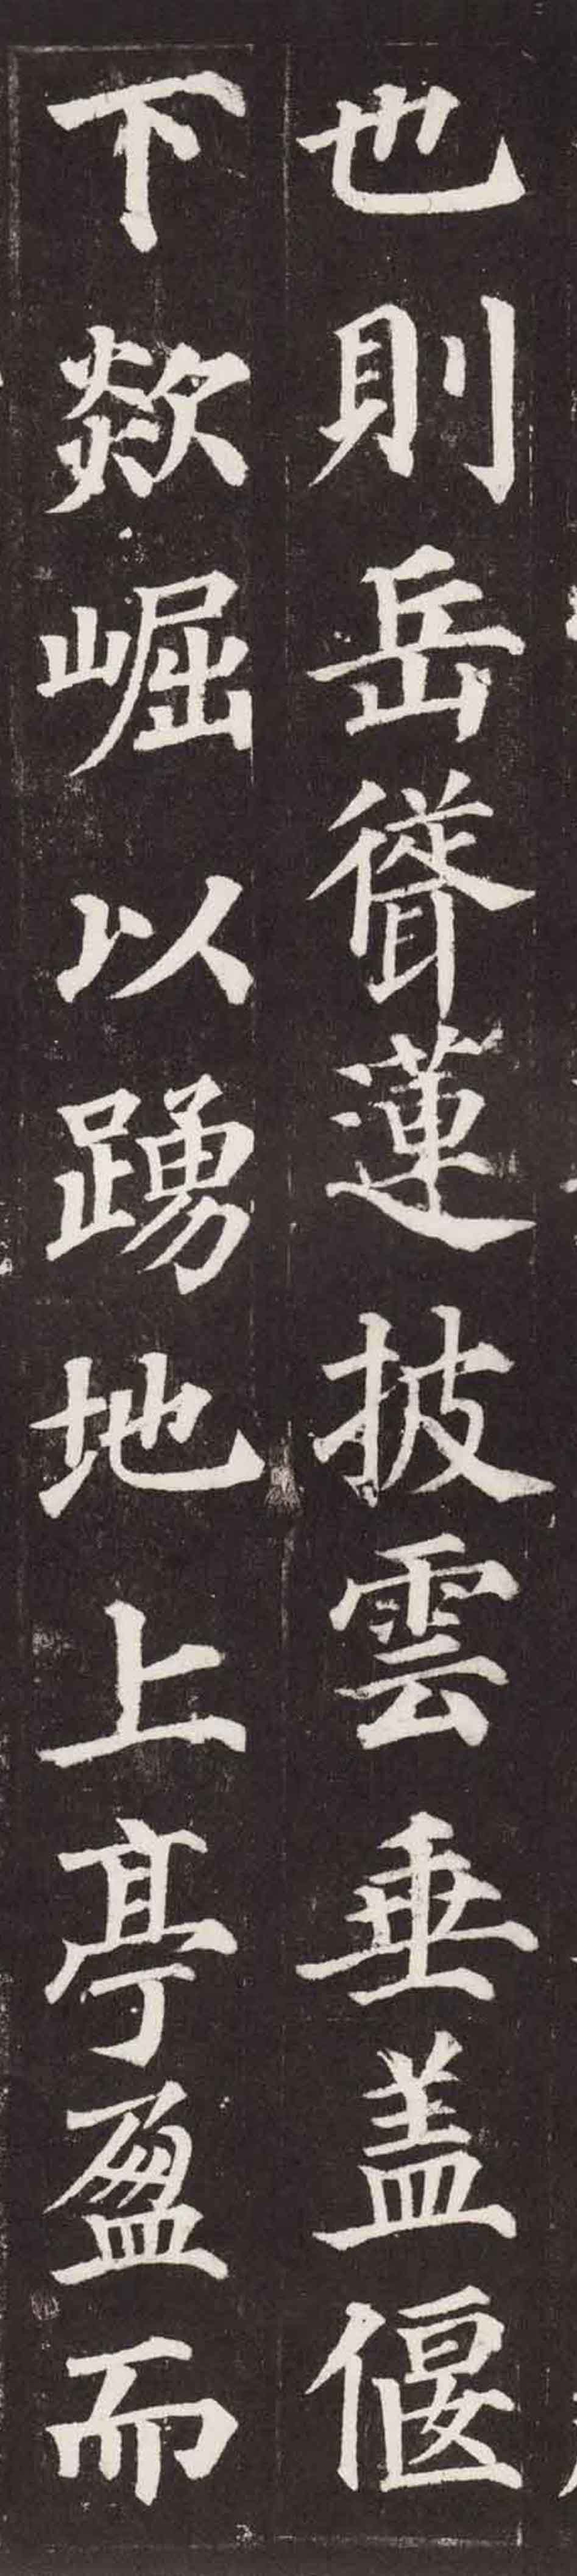 也則岳聳蓮披雲垂盖偃
下欻崛以踴地上亭盈而